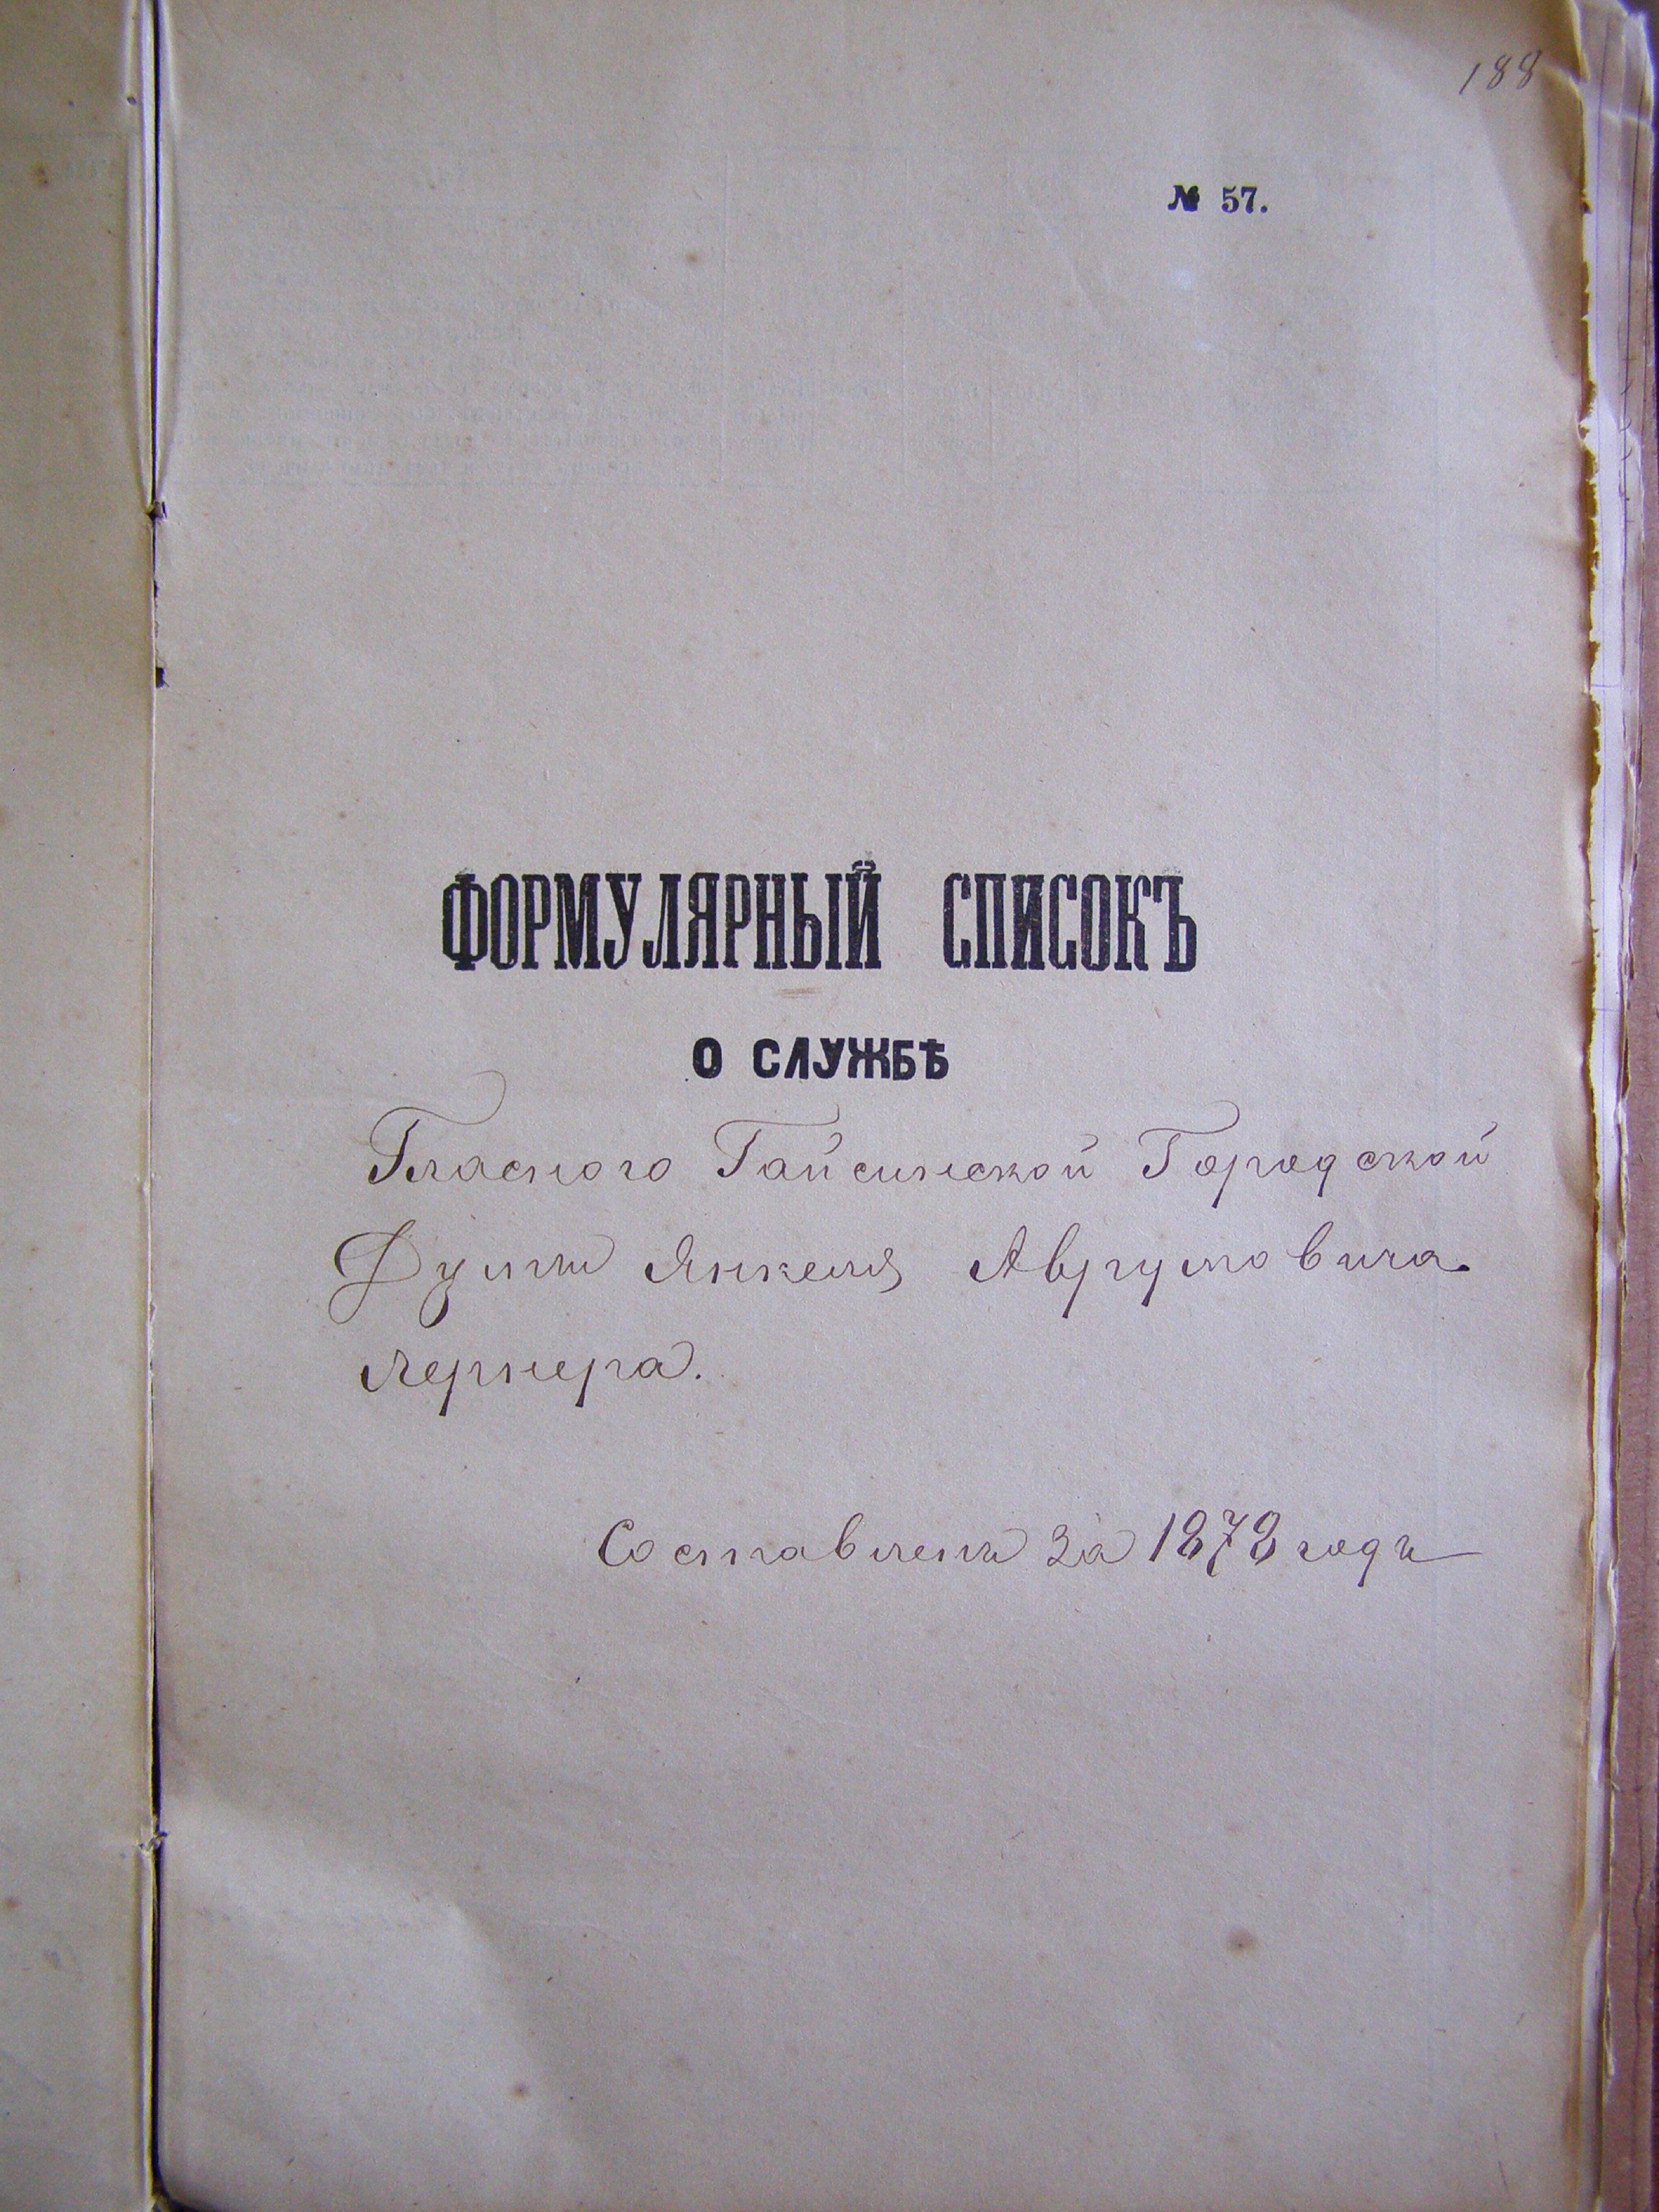 188
№ 57.
ФОРМУЛЯРНЫЙ СПИСОКЪ
О СЛУЖБѢ
Гласного Гайсинской Городской
Думы Янкеля Аврумовича
Лернера.
Составленъ за 1878 годъ